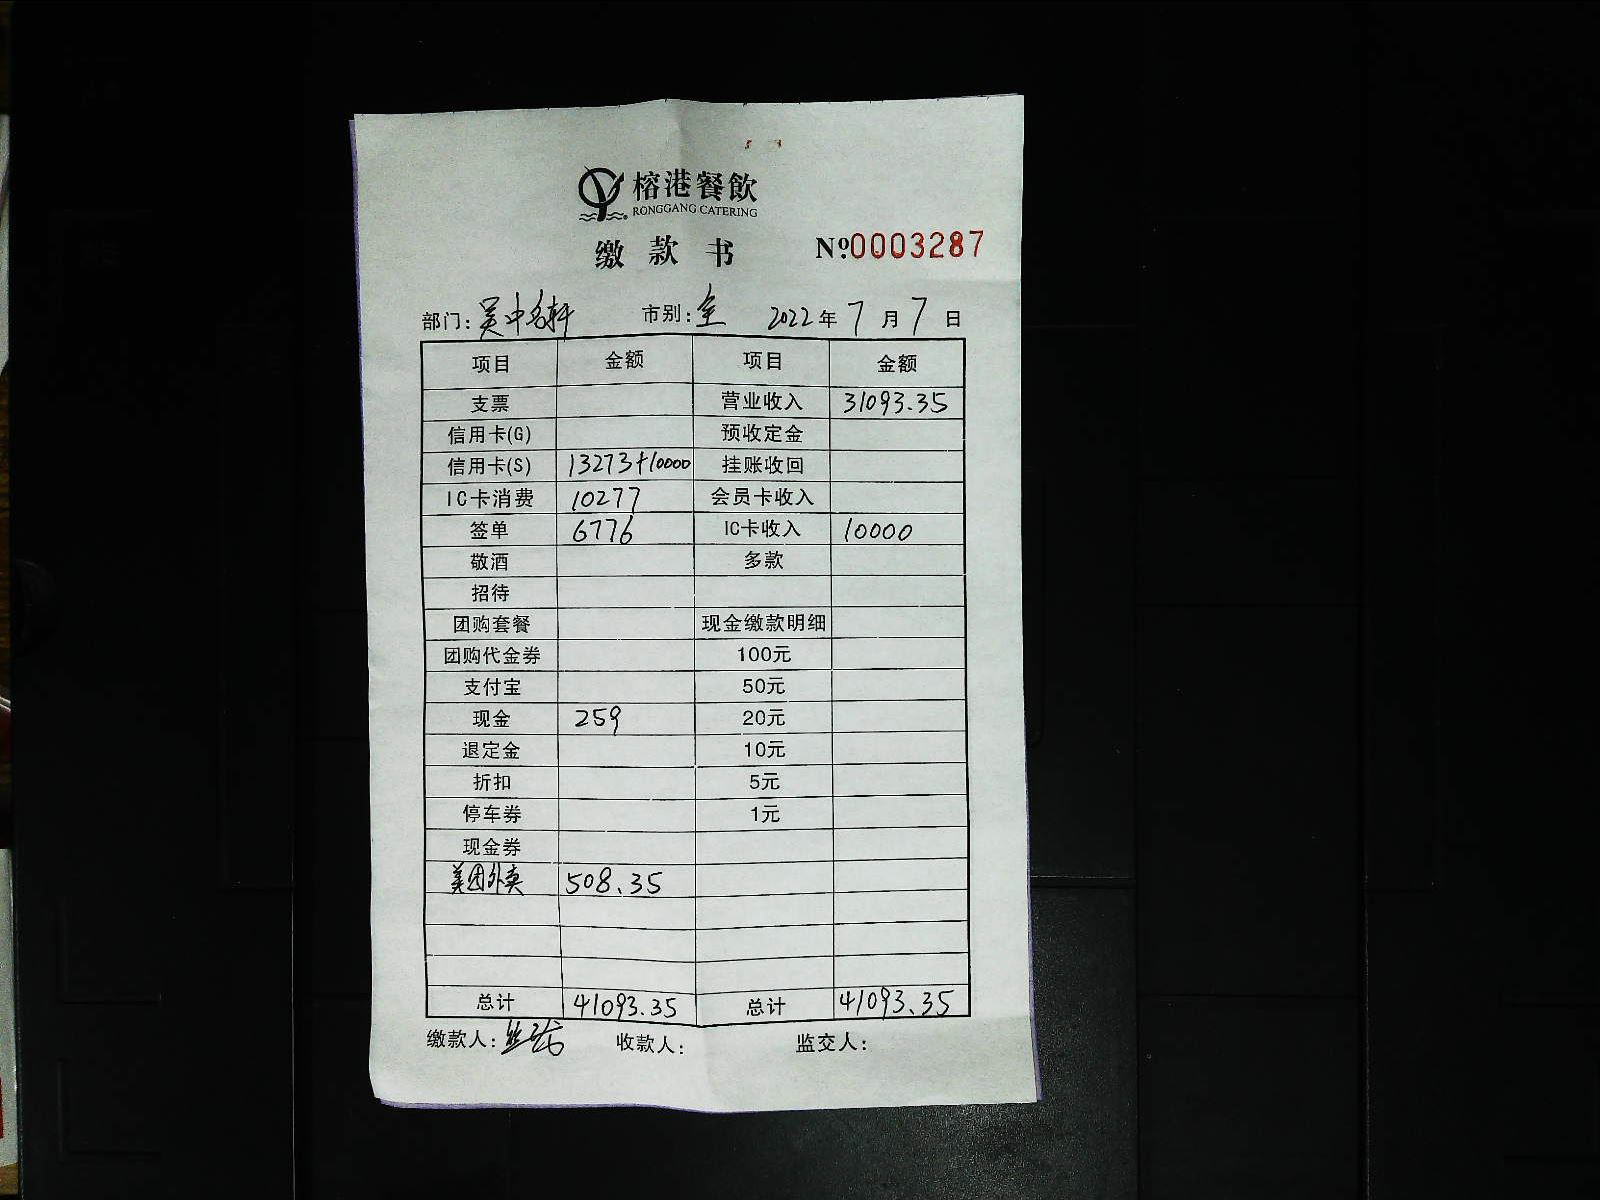 榕港餐飲
RONGGANG CATERING
缴款书 №0003287
部门: 吴中名轩 市别: 全 2022年7月7日
项目 金额 项目 金额
支票 营业收入 31093.35
信用卡(G) 预收定金
信用卡(S) 13273+10000 挂账收回
IC卡消费 10277 会员卡收入
签单 6776 IC卡收入 10000
敬酒 多款
招待
团购套餐 现金缴款明细
团购代金券 100元
支付宝 50元
现金 259 20元
退定金 10元
折扣 5元
停车券 1元
现金券
美团外卖 508.35
总计 41093.35 总计 41093.35
缴款人: 收款人: 监交人: